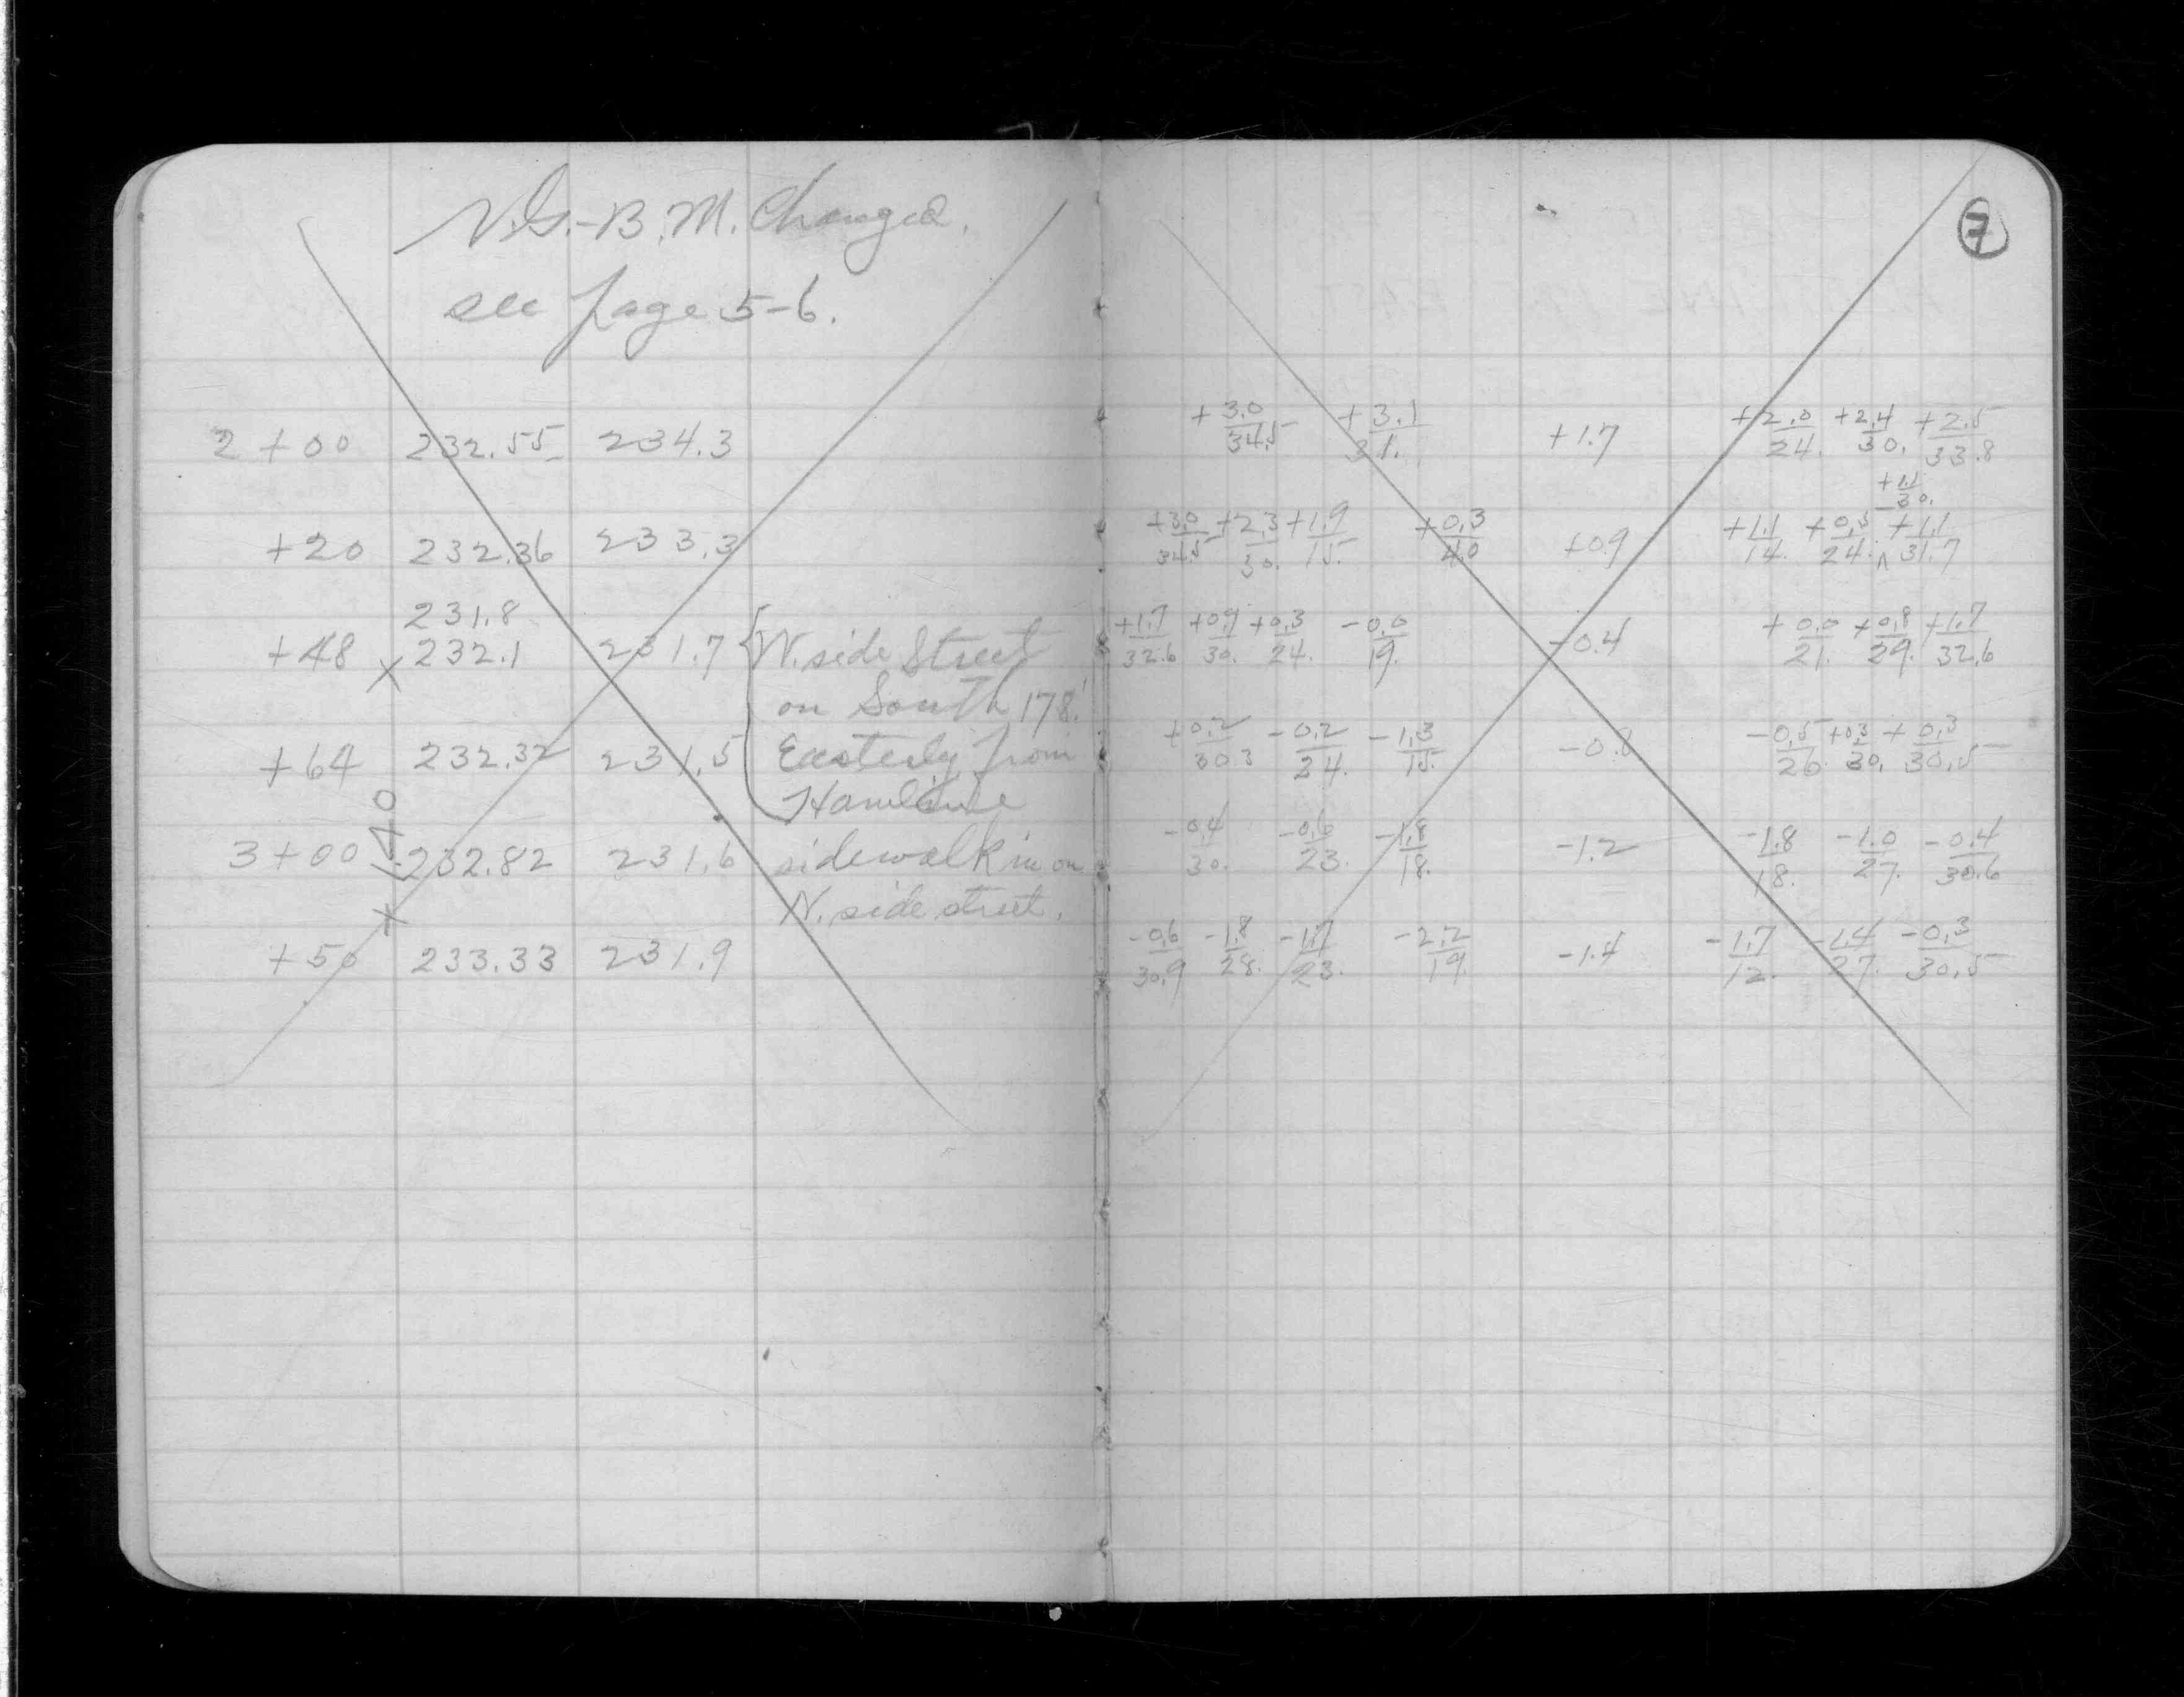 N.G.-B.M. Changed.
see page 5-6.
7
2+00 232.55 234.3 +3.0/34.5 +3.1/31. +1.7 +2.0/24. +2.4/30. +2.5/33.8
+1.1/30.
+20 232.36 233.3 +3.0/34.5 +2.3/30. +1.9/15. +0.3/40 +0.9 +1.1/14. +0.5/24. ^ +1.1/31.7
231.8
+48 x 232.1 231.7 { N. side Street +1.7/32.6 +0.9/30. +0.3/24. -0.0/19. -0.4 +0.0/21. +0.8/29. +1.7/32.6
on South 178.'
+64 232.32 231.5 Easterly from +0.2/30.3 -0.2/24. -1.3/15. -0.8 -0.5/26. +0.3/30. +0.3/30.5
Hamline
x<40
3+00 232.82 231.6 sidewalk in on -0.4/30. -0.6/23. -1.8/18. -1.2 -1.8/18. -1.0/27. -0.4/30.6
N. side street.
+50 233.33 231.9 -0.6/30.9 -1.8/28. -1.7/23. -2.2/19. -1.4 -1.7/12. -1.4/27. -0.3/30.5